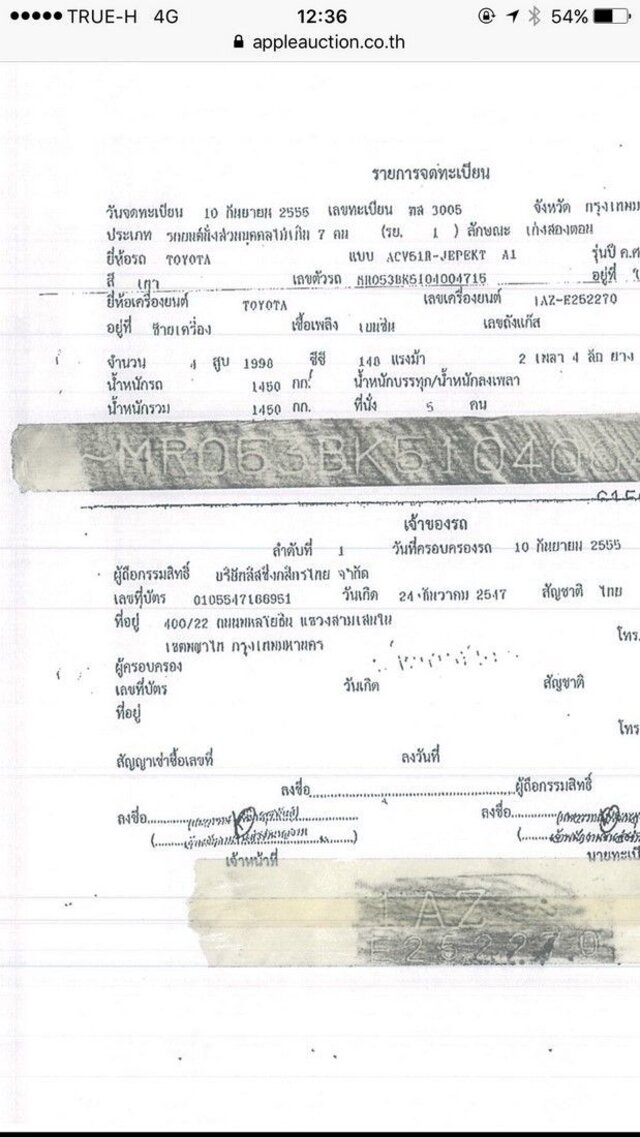 TRUE-H 4G 12:36 54%
appleauction.co.th
รายการจดทะเบียน
วันจดทะเบียน 10 กันยายน 2555 เลขทะเบียน ฆส 3005 จังหวัด กรุงเทพม
ประเภท รถยนต์นั่งส่วนบุคคลไม่เกิน 7 คน (รย. 1 ) ลักษณะ เก๋งสองตอน
ยี่ห้อรถ TOYOTA แบบ ACV51R-JEPEKT A1 รุ่นปี ค.ศ
สี เทา เลขตัวรถ MR053BK5104004715 อยู่ที่
ยี่ห้อเครื่องยนต์ TOYOTA เลขเครื่องยนต์ 1AZ-E252270
อยู่ที่ ซ้ายเครื่อง เชื้อเพลิง เบนซิน เลขถังแก๊ส
จำนวน 4 สูบ 1998 ซีซี 148 แรงม้า 2 เพลา 4 ล้อ ยาง
น้ำหนักรถ 1450 กก. น้ำหนักบรรทุก/น้ำหนักลงเพลา
น้ำหนักรวม 1450 กก. ที่นั่ง 5 คน
~MR053BK510400
เจ้าของรถ
ลำดับที่ 1 วันที่ครอบครองรถ 10 กันยายน 2555
ผู้ถือกรรมสิทธิ์ บริษัทลีสซิ่งกสิกรไทย จำกัด
เลขที่บัตร 0105547166951 วันเกิด 24 ธันวาคม 2547 สัญชาติ ไทย
ที่อยู่ 400/22 ถนนพหลโยธิน แขวงสามเสนใน
เขตพญาไท กรุงเทพมหานคร โทร.
ผู้ครอบครอง
เลขที่บัตร วันเกิด สัญชาติ
ที่อยู่
โทร
สัญญาเช่าซื้อเลขที่ ลงวันที่
ลงชื่อ ผู้ถือกรรมสิทธิ์
ลงชื่อ ลงชื่อ
เจ้าหน้าที่ นายทะเบี
1AZ
E252270